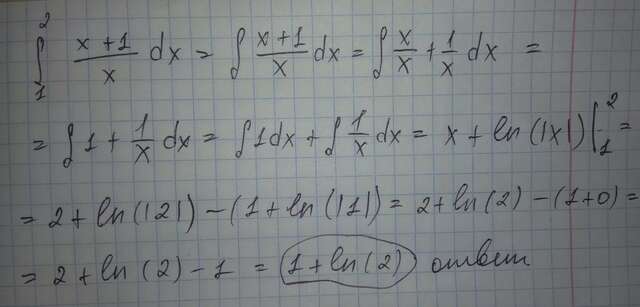 ∫₁² (x+1)/x dx = ∫ (x+1)/x dx = ∫ x/x + 1/x dx =
= ∫ 1 + 1/x dx = ∫ 1dx + ∫ 1/x dx = x + ln(|x|) |₁² =
= 2 + ln(|2|) - (1 + ln(|1|) = 2 + ln(2) - (1+0) =
= 2 + ln(2) - 1 = 1 + ln(2) ответ